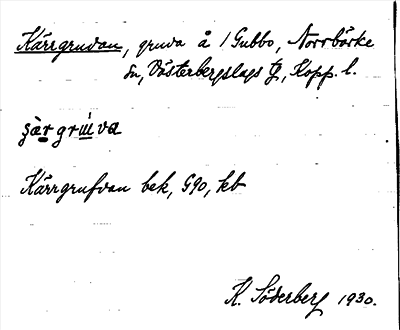 Kärrgruvan, gruva å 1 Gubbo, Norrbärke
sn, Västerbergslags tg, Kopp. l.
gr
Kärrgrufvan bek, G90, kb
K. Söderberg 1930.